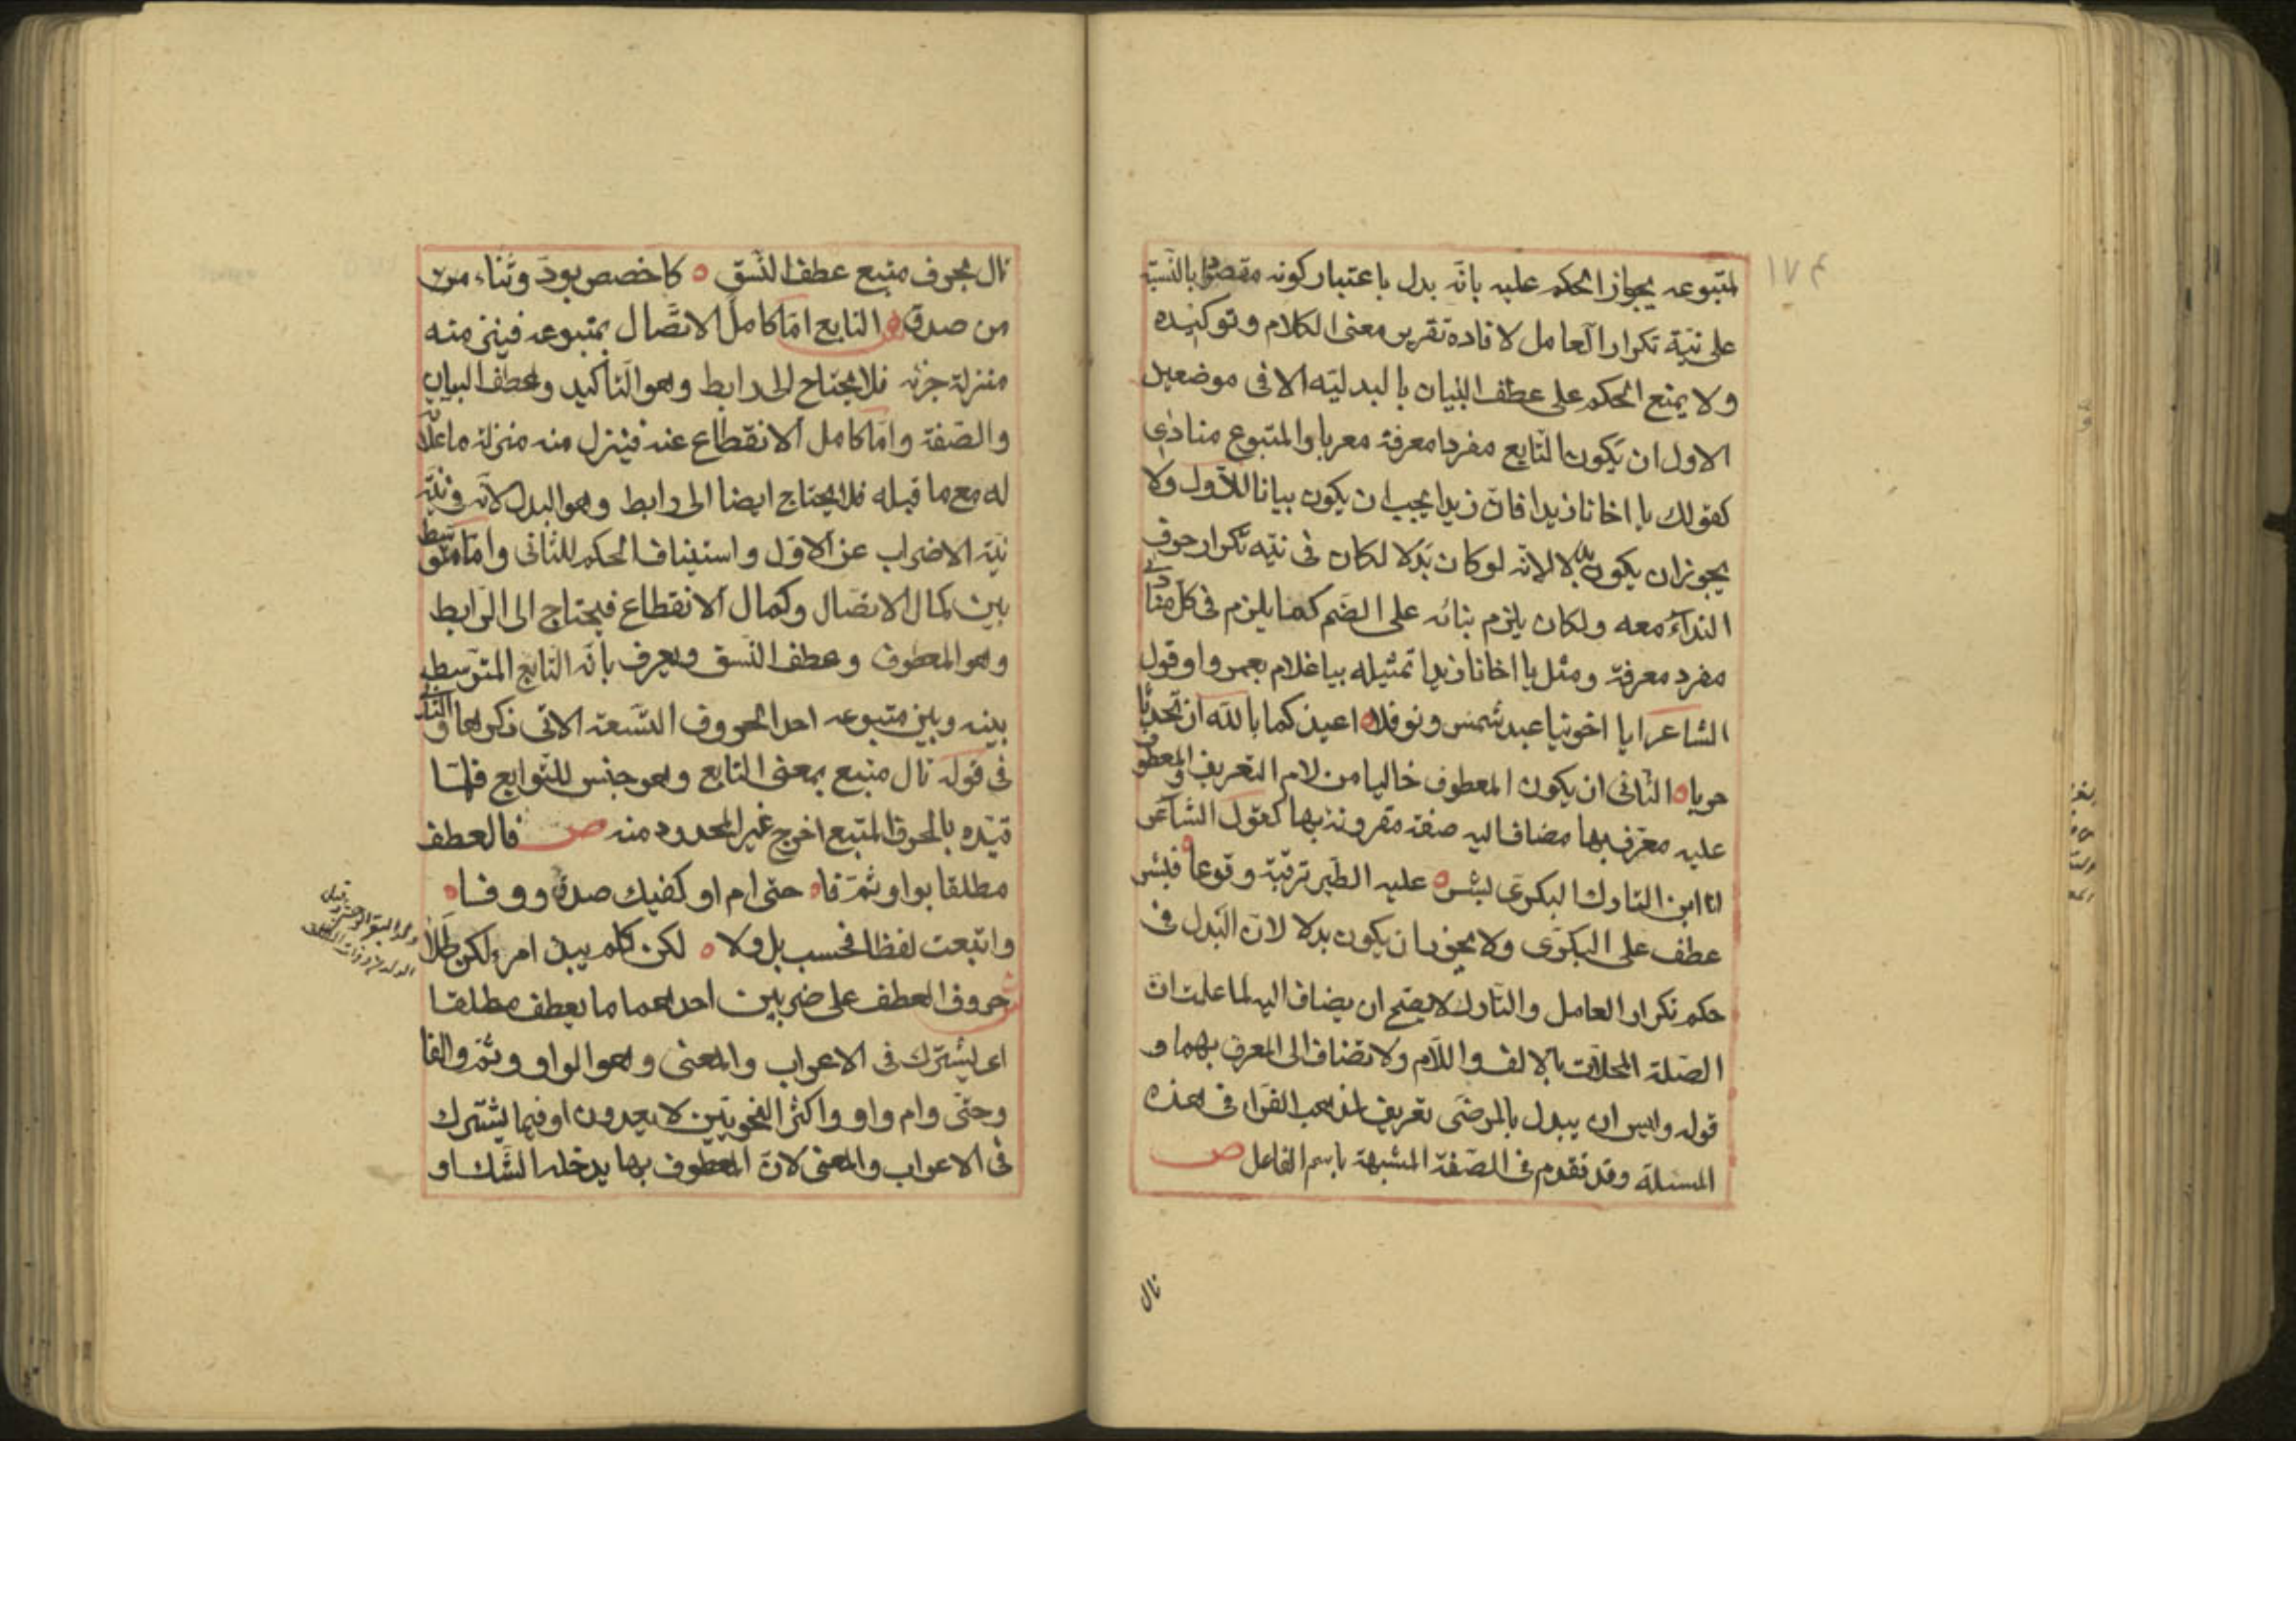 ١٧٤
لمتبوعه يجواز الحكم عليه بانّه بدل باعتبار كونه مقصودا بالنّسبة
على نيّة تكرار العامل لافادة تقرير معنى الكلام وتوكيده
ولا يمتنع الحكم على عطف البيان بالبدليّه الا فى موضعين
الاول ان يكون التابع مفردا معرفة معربا والمتبوع منادى
كقولك يا اخانا زيدا فانّ زيدا يجب ان يكون بيانا للاوّل ولا
يجوز ان يكون بدلا لانّه لو كان بدلا لكان فى نيّه تكرار حرف
النداء معه ولكان يلزم بنائه على الضم كما يلزم فى كل منادى
مفرد معرفة ومثل يا اخانا زيدا تمثيله بيا غلام يعمر او قول
الشاعر ايا اخوينا عبد شمس ونوفلا ه اعيذكما بالله ان تحدثا
حربا ه الثانى ان يكون المعطوف خاليا من لام التعريف والمعطوف
عليه معرّف بها مضاف اليه صفة مقرونة بها كقول الشاعر
انا ابن التارك البكرىّ بشر ه عليه الطير ترقبة وقوعا ه فبشر
عطف على البكرىّ ولا يجوز ان يكون بدلا لانّ البدل فى
حكم تكرار العامل والتارك لا يصح ان يضاف اليه لما علمت انّ
الصّلة المحلّات بالالف واللّام ولا تضاف الى المعرف بهما و
قوله وليس ان يبدل بالمرضىّ تعريض لمذهب الفرّاء فى هذه
المسئلة وقد تقدم فى الصّفة المشبهة باسم الفاعل ص
تال
تال بحرف متبع عطف النّسق ه كاخصص بودّ وثناء من
من صدق ش التابع امّا كامل الاتّصال بمتبوعه فينزل منه
منزلة جزئه فلا يحتاج الى رابط وهو التأكيد وعطف البيان
والصّفة وامّا كامل الانقطاع عنه فينزل منه منزلة ما علّا
له مع ما قبله فلا يحتاج ايضا الى رابط وهو البدل لانّه فى نيّة
نيّة الاضراب عن الاوّل واستيناف الحكم للثانى وامّا متوسّط
بين كمال الاتصال وكمال الانقطاع فيحتاج الى الرّابط
وهو المعطوف وعطف النّسق ويعرف بانّه التابع المتوسّط
بينه وبين متبوعه احد الحروف التّسعة الاتى ذكرها والتال
فى قوله تال متبع بمعنى التابع وهو جنس للتّوابع فلمّا
قيّده بالحرف المتبع اخرج غير المحدود منه ص فالعطف
مطلقا بواو ثمّ فا ه حتى ام او كفيك صدق ووفا ه
واتبعت لفظا فحسب بل ولا ه لكن كلم يبد امرء لكن طلا
حروف العطف على ضربين احدهما ما يعطف مطلقا
اى يشترك فى الاعراب والمعنى وهو الواو وثمّ والفا
وحتّى وام واو واكثر النحويّين لا يعدون او فيما يشترك
فى الاعراب والمعنى لانّ المعطوف بها يدخله الشك او